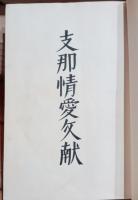 支那情愛文献